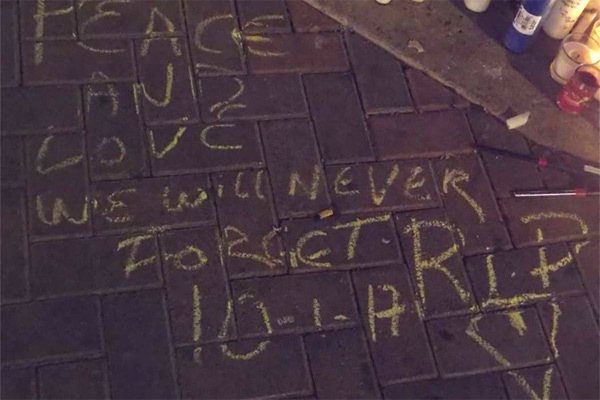 PEACE
AND
LOVE
WE Will NEVER
FORGET RIP
10-1-17